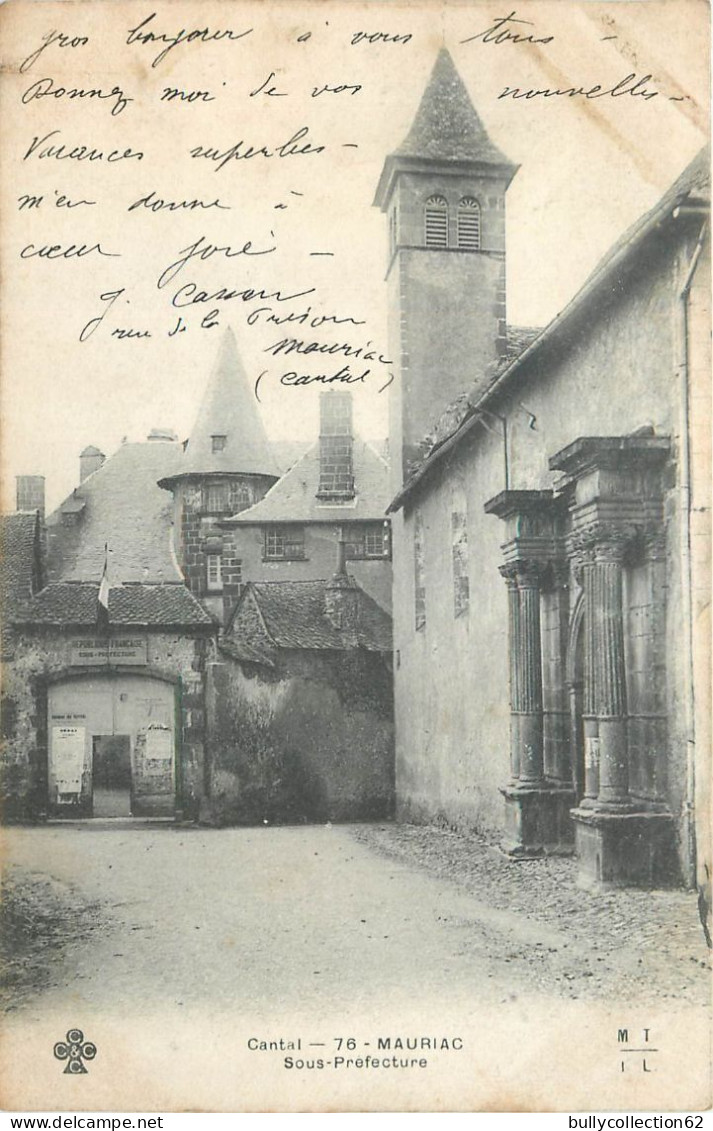 gros bonjour à vous tous -
Donnez moi de vos nouvelles -
Vacances superbes -
m'en donne à
cœur joie -
J. Casson
rue de la Prison
Mauriac
(Cantal)
REPUBLIQUE FRANÇAISE
SOUS-PREFECTURE
Cantal — 76 - MAURIAC
Sous-Préfecture
C C & C C
M T
I L
bullycollection62